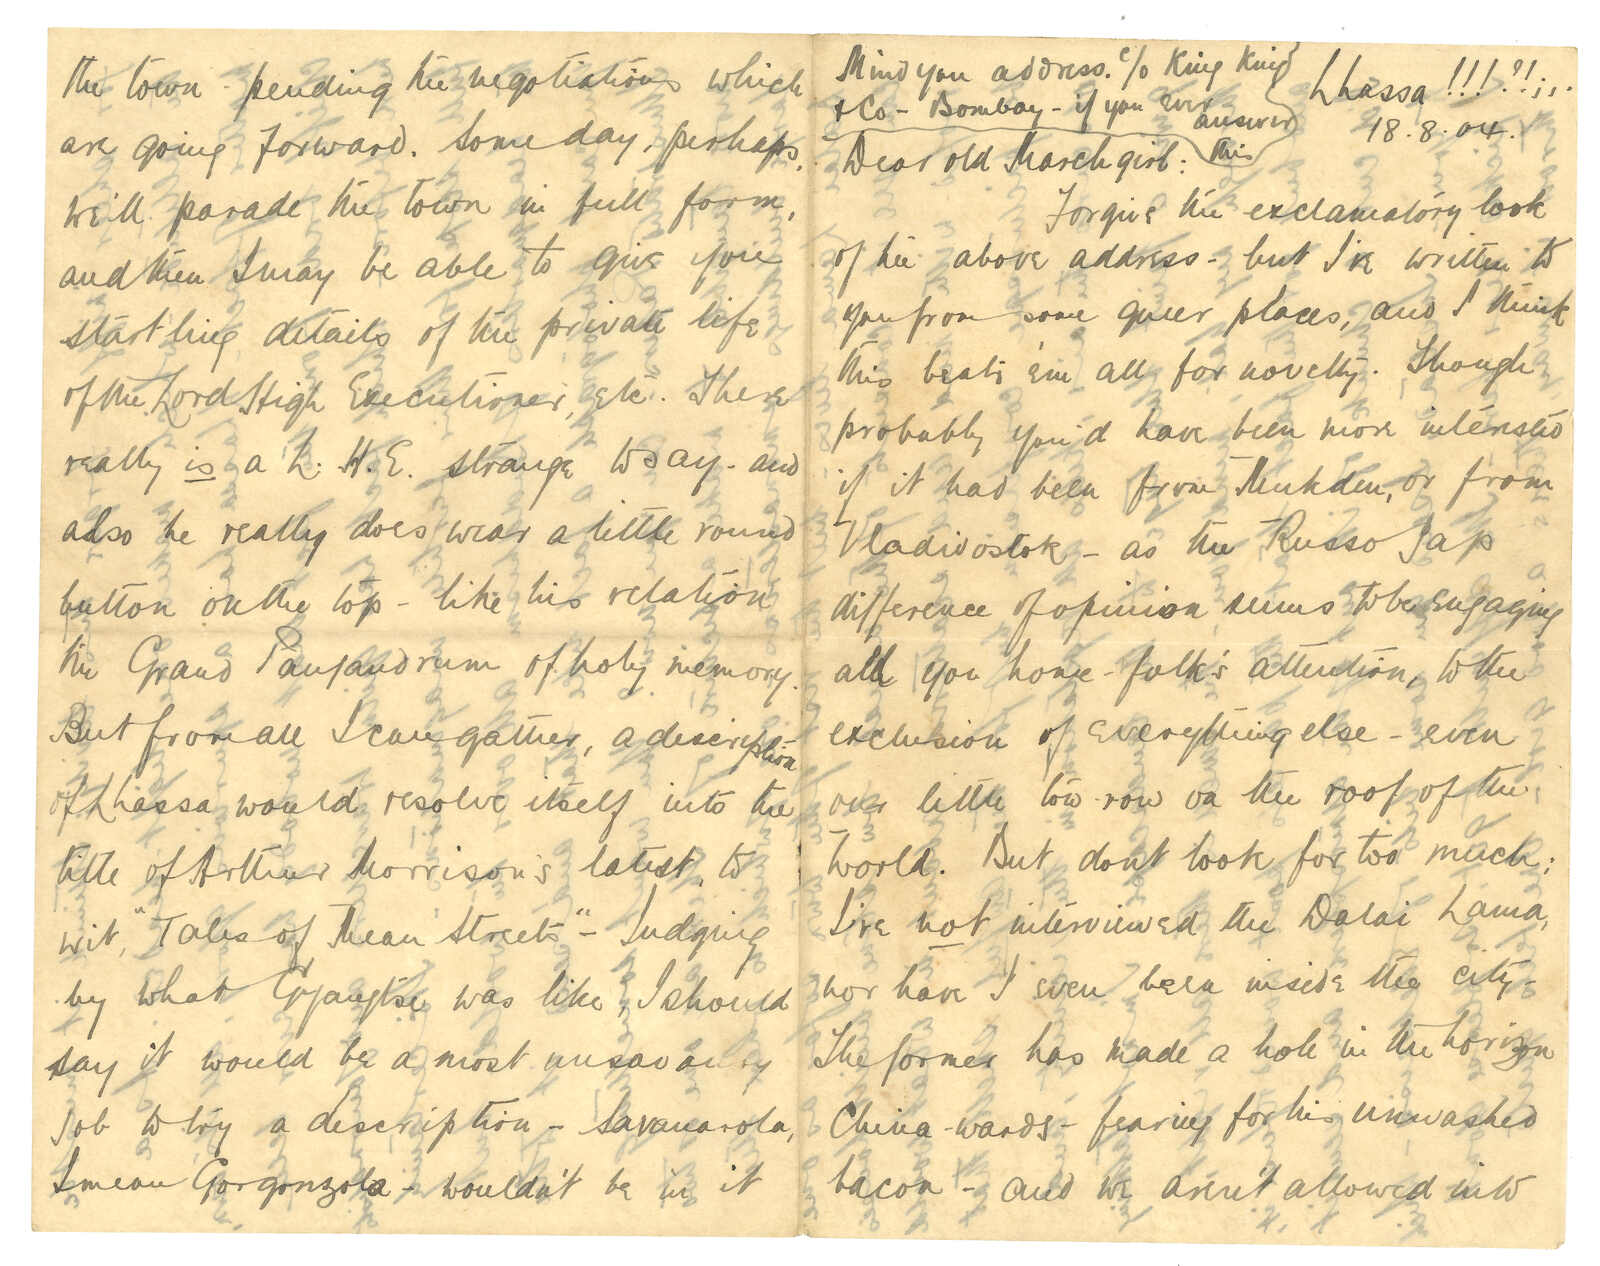 Mind you address. c/o King King
& Co - Bombay - if you ever answer
this
Lhassa !!! ?!;,.
18.8.04.
Dear old March girl:
Forgive the exclamatory look
of the above address - but I've written to
you from some queer places, and I think
this beats 'em all for novelty. Though
probably you'd have been more interested
if it had been from Mukden, or from
Vladivostok - as the Russo Jap
difference of opinion seems to be engaging
all you home-folk's attention, to the
exclusion of everything else - even
our little tow-row on the roof of the
World. But dont look for too much:
I've not interviewed the Dalai Lama,
nor have I even been inside the city -
The former has made a hole in the horizon
China-wards - fearing for his unwashed
bacon - and we aren't allowed into
the town - pending the negotiations which
are going forward. Some day, perhaps,
we'll parade the town in full form,
and then I may be able to give you
startling details of the private life
of the Lord High Executioner, etc. There
really is a L.H.E. strange to say - and
also he really does wear a little round
button on the top - like his relation
the Grand Panjandrum of holy memory.
But from all I can gather, a description
of Lhassa would resolve itself into the
title of Arthur Morrison's latest, to
wit, "Tales of Mean Streets" - Judging
by what Gyangtse was like, I should
say it would be a most unsavoury
job to try a description - Savanarola,
I mean Gorgonzola - wouldn't be in it